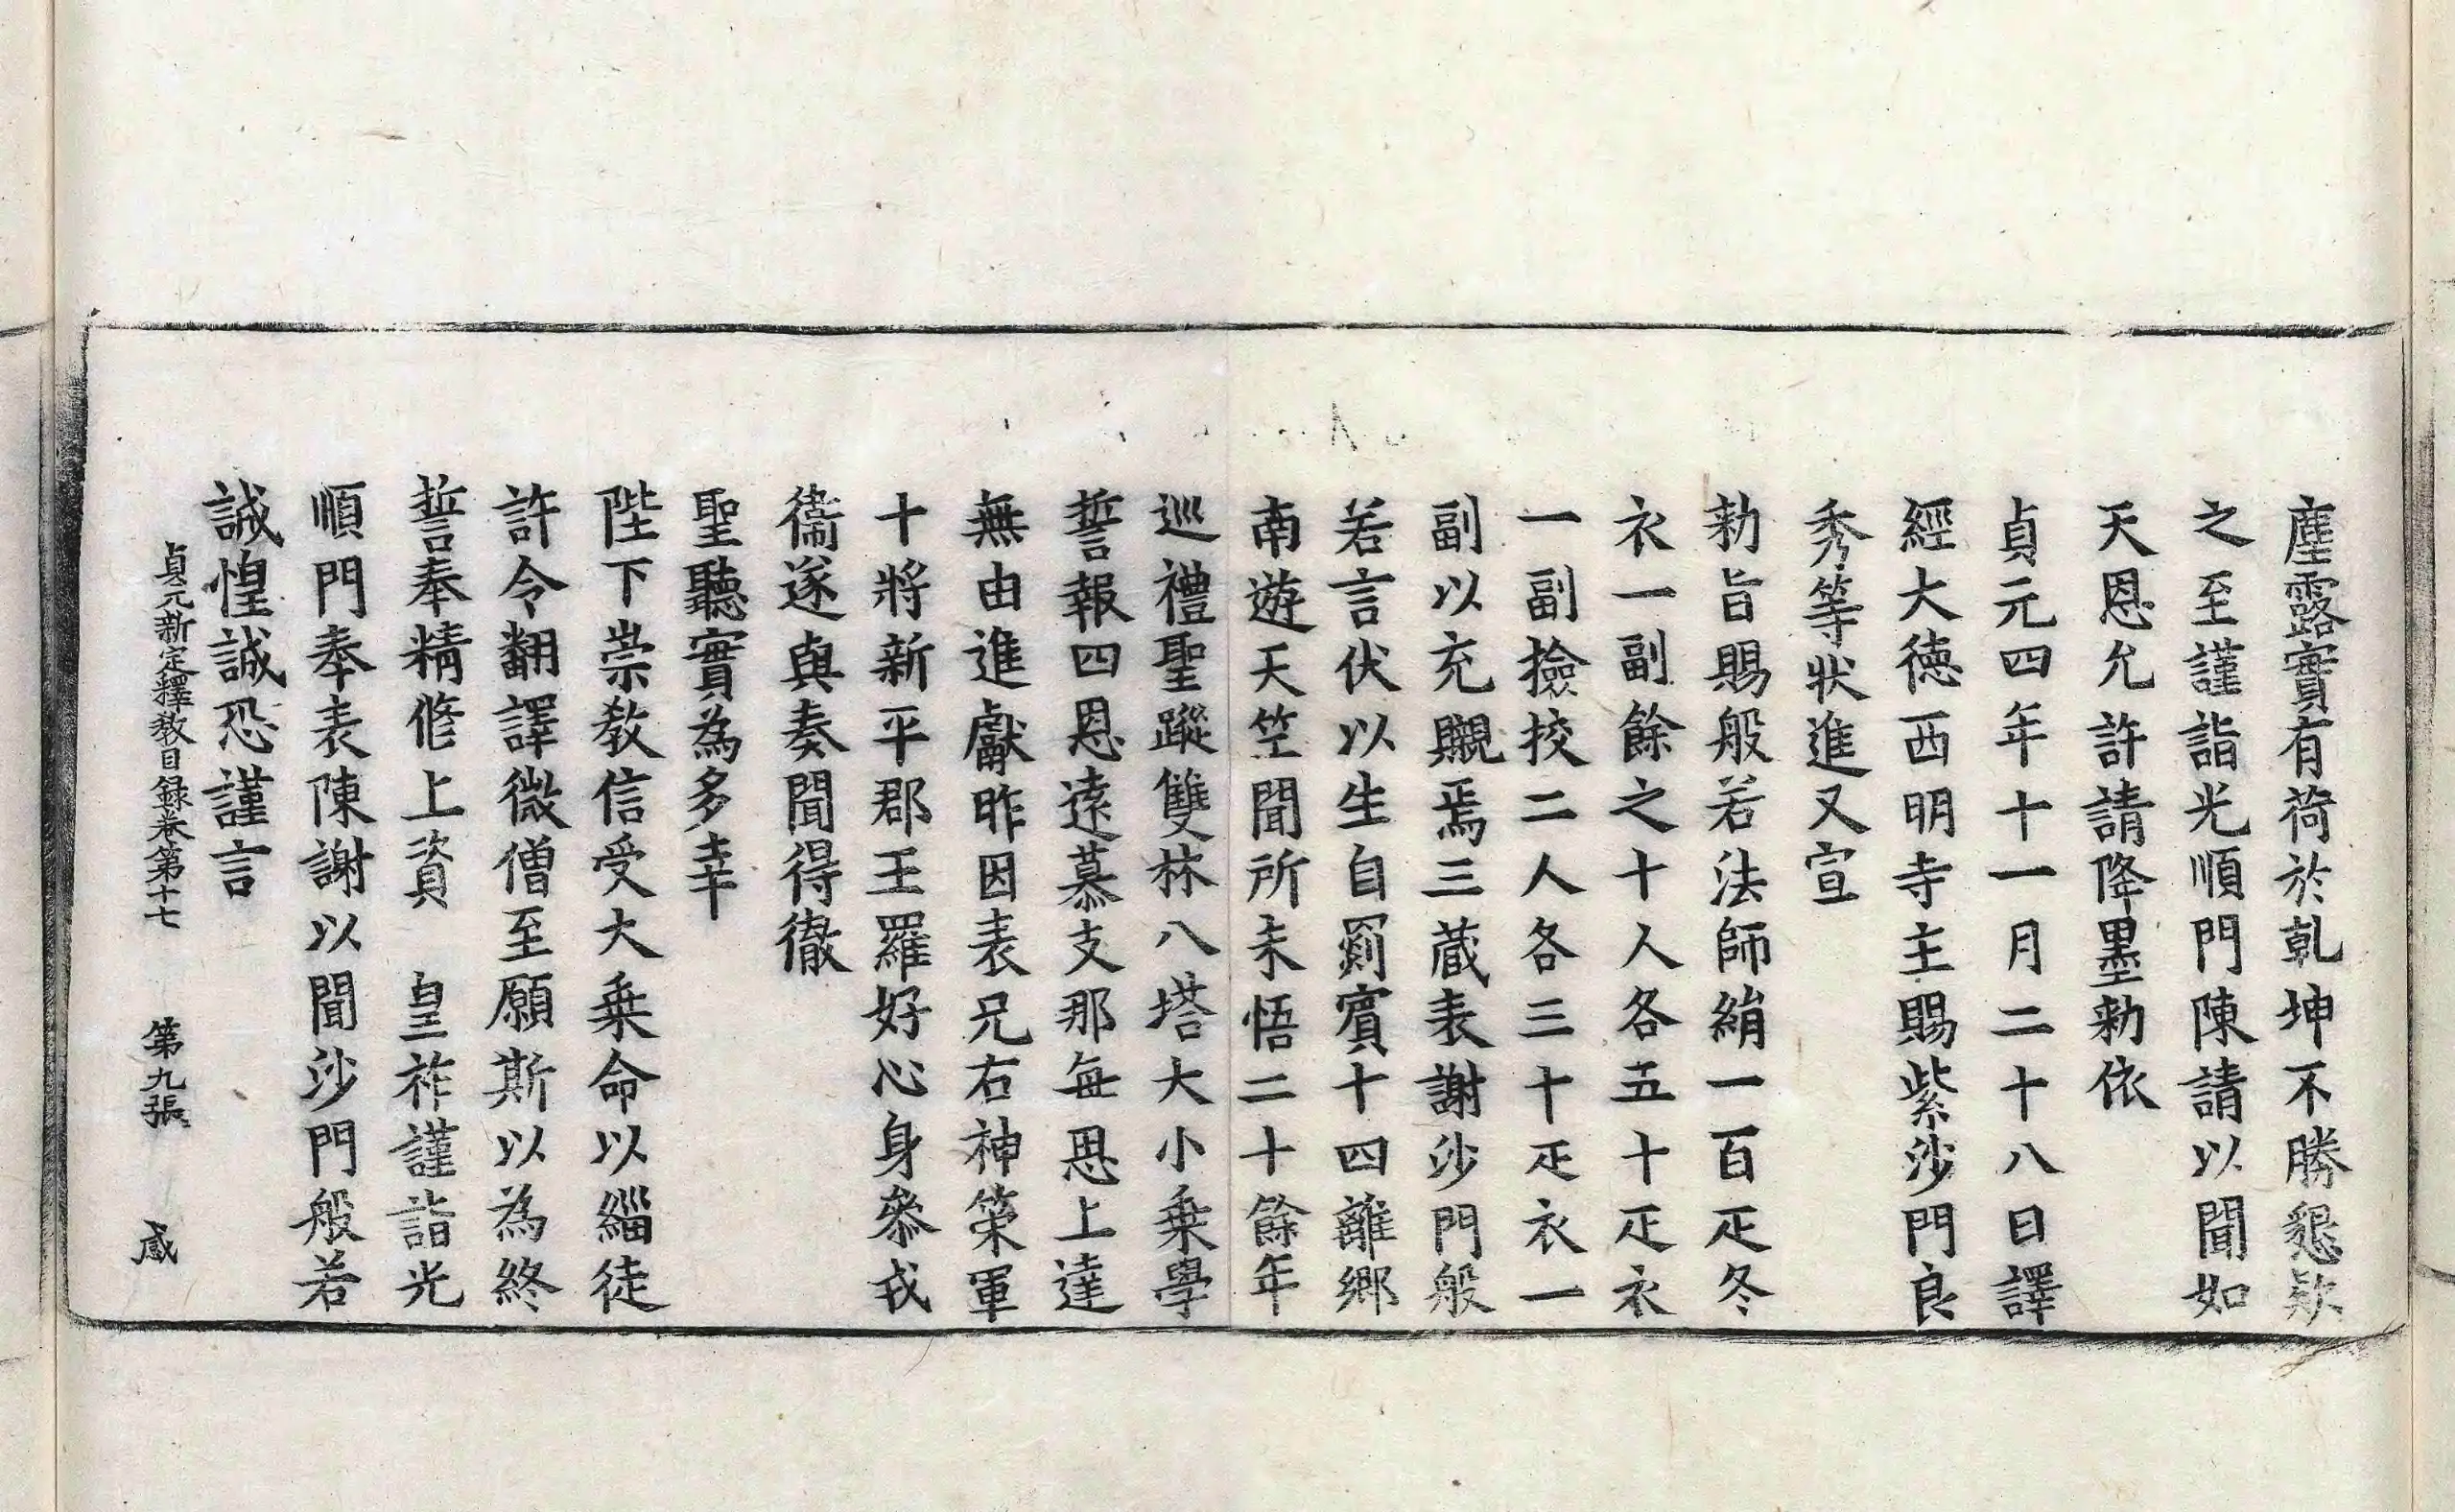 塵露實有荷於乹坤不勝懇欵
之至謹詣光順門陳請以聞如
天恩允許請降墨勑依
貞元四年十一月二十八日譯
經大徳西明寺主賜紫沙門良
秀等狀進又宣
勑旨賜般若法師絹一百疋冬
衣一副餘之十人各五十疋衣
一副撿挍二人各三十疋衣一
副以充嚫焉三蔵表謝沙門般
若言伏以生自罽賓十四離鄉
南遊天笁聞所未悟二十餘年
巡禮聖蹤雙林八塔大小乗學
誓報四恩遠慕支那每恩上達
無由進獻昨因表兄右神策軍
十將新平郡王羅好心身叅戎
衞遂與奏聞得徹
聖聽實為多幸
陛下崇教信受大乗命以緇徒
許令翻譯微僧至願斯以為終
誓奉精修上資　皇祚謹詣光
順門奉表陳謝以聞沙門般若
誠惶誠恐謹言
貞元新定釋教目録卷第十七　第九張　感